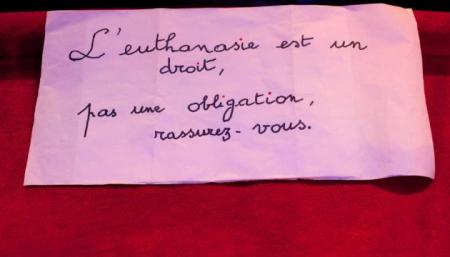 L'euthanasie est un
droit,
pas une obligation,
rassurez-vous.